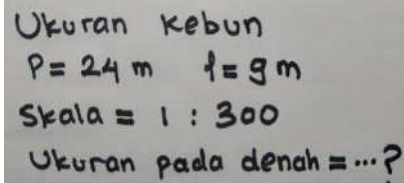 Ukuran kebun
P = 24 m l = 9 m
Skala = 1 : 300
Ukuran pada denah = ...?